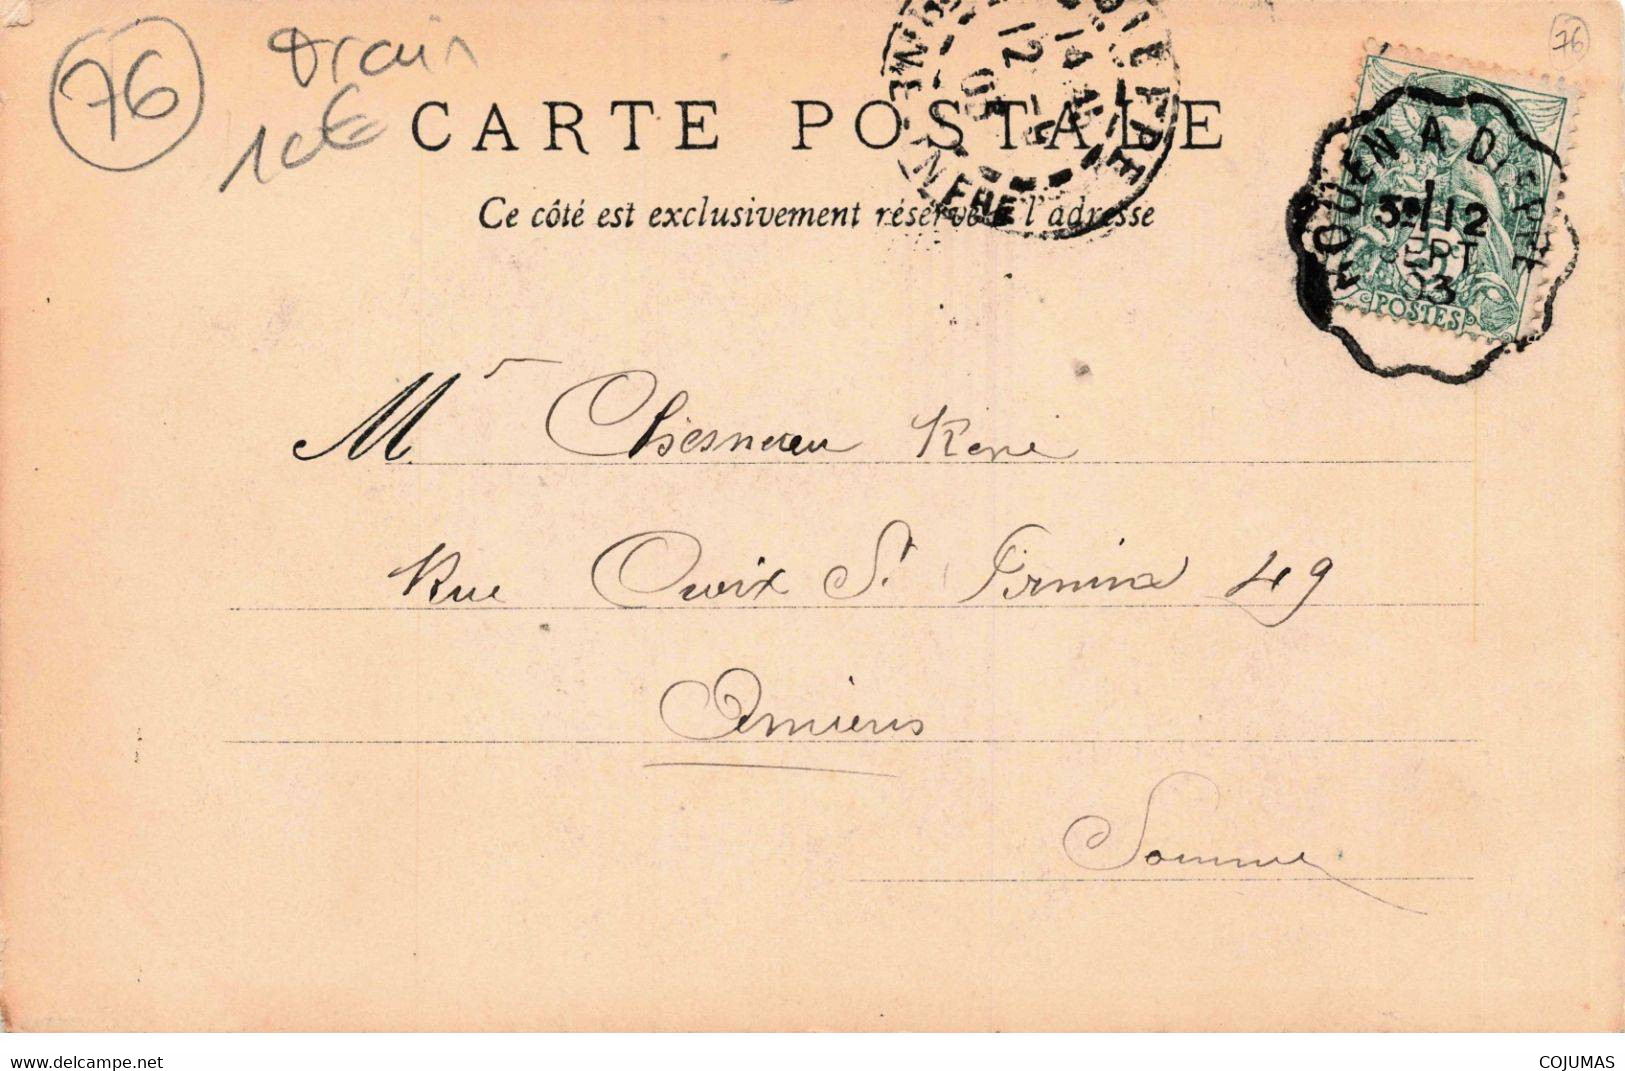 76
train
10€
76
CARTE POSTALE
Ce côté est exclusivement réservé à l'adresse
DIEPPE
14
12
INFRE
ROUEN A DIEPPE
3E 12
SEPT
03
POSTES
Mr Chesneau René
Rue Croix St Firmin 49
Amiens
Somme
www.delcampe.net
COJUMAS